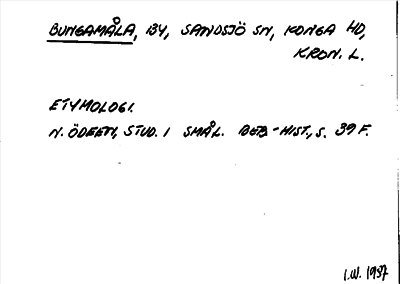 BUNGAMÅLA, BY, SANDSJÖ SN, KONGA HD,
KRON. L.
ETYMOLOGI.
N. ÖDEEN, STUD. I SMÅL. BEB-HIST., S. 39 F.
I.W. 1937